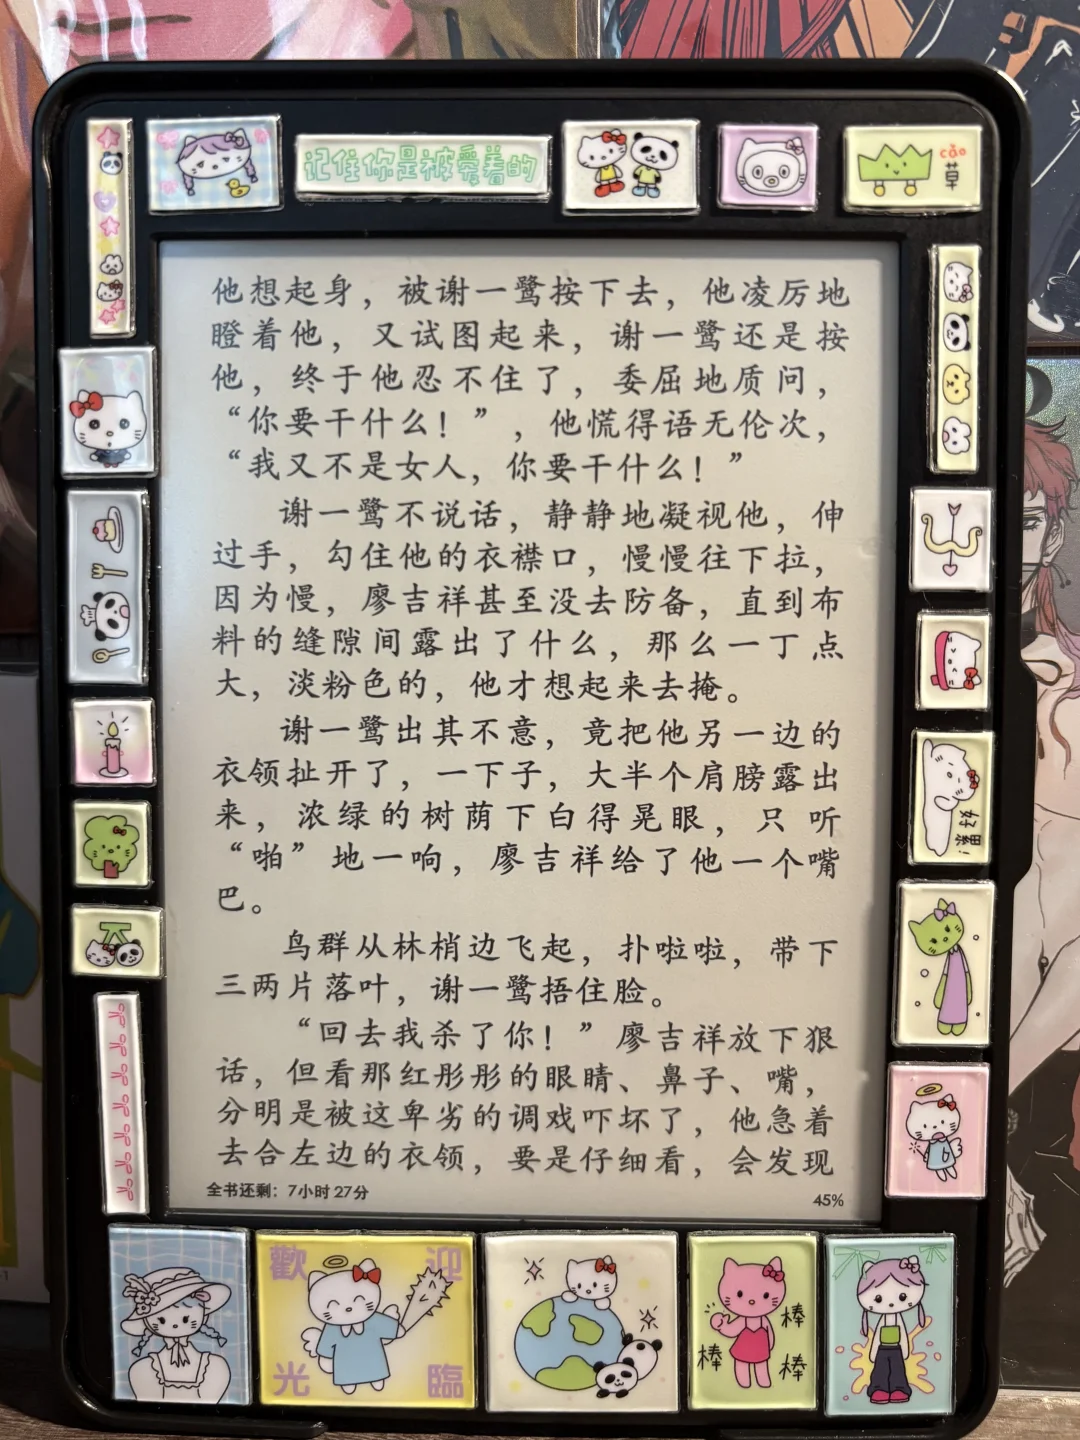 记住你是被爱着的
cǎo
草
他想起身，被谢一鹭按下去，他凌厉地
瞪着他，又试图起来，谢一鹭还是按
他，终于他忍不住了，委屈地质问，
“你要干什么！”，他慌得语无伦次，
“我又不是女人，你要干什么！”
谢一鹭不说话，静静地凝视他，伸
过手，勾住他的衣襟口，慢慢往下拉，
因为慢，廖吉祥甚至没去防备，直到布
料的缝隙间露出了什么，那么一丁点
大，淡粉色的，他才想起来去掩。
谢一鹭出其不意，竟把他另一边的
衣领扯开了，一下子，大半个肩膀露出
来，浓绿的树荫下白得晃眼，只听
“啪”地一响，廖吉祥给了他一个嘴
巴。
鸟群从林梢边飞起，扑啦啦，带下
三两片落叶，谢一鹭捂住脸。
“回去我杀了你！”廖吉祥放下狠
话，但看那红彤彤的眼睛、鼻子、嘴，
分明是被这卑劣的调戏吓坏了，他急着
去合左边的衣领，要是仔细看，会发现
全书还剩：7小时27分
45%
歡迎
光臨
棒
棒
棒